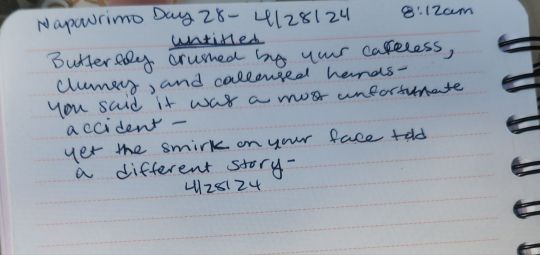 Napowrimo Day 28- 4/28/24 8:12am
Untitled
Butterfly crushed by your careless,
clumsy, and calloused hands-
you said it was a most unfortunate
accident-
yet the smirk on your face told
a different story-
4/28/24